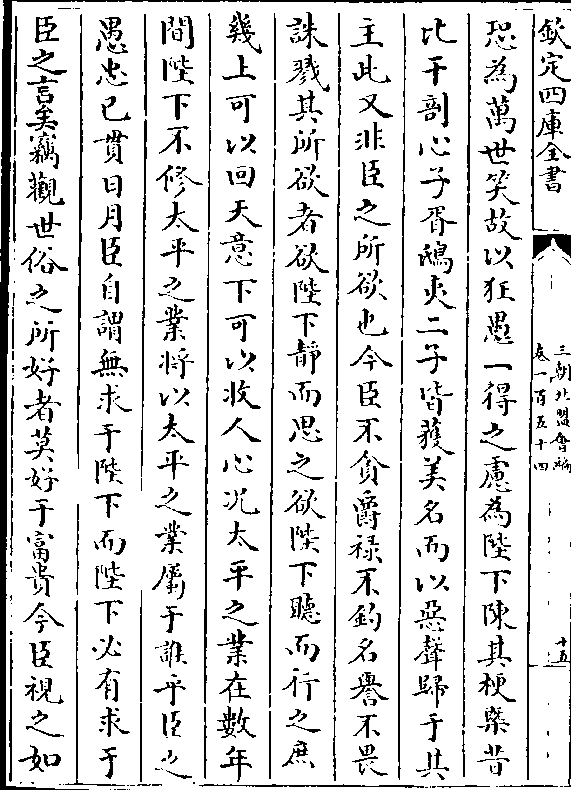 欽定四庫全書
三朝北盟會編
卷一百五十四
十五
恐為萬世笑故以狂愚一得之慮為陛下陳其梗槩昔
比干剖心子胥鴟夷二子皆獲美名而以惡聲歸于其
主此又非臣之所欲也今臣不貪爵禄不釣名譽不畏
誅戮其所欲者欲陛下靜而思之欲陛下聽而行之庶
幾上可以回天意下可以收人心况太平之業在數年
間陛下不修太平之業將以太平之業屬于誰乎臣之
愚忠已貫日月臣自謂無求于陛下而陛下必有求于
臣之言矣竊觀世俗之所好者莫好于富貴今臣視之如